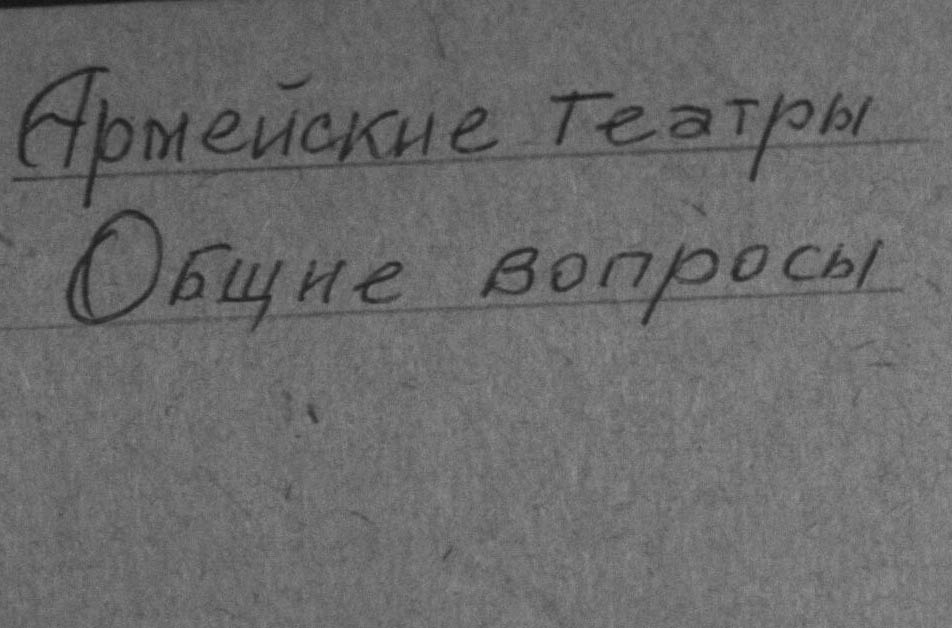 Армейские театры
Общие вопросы